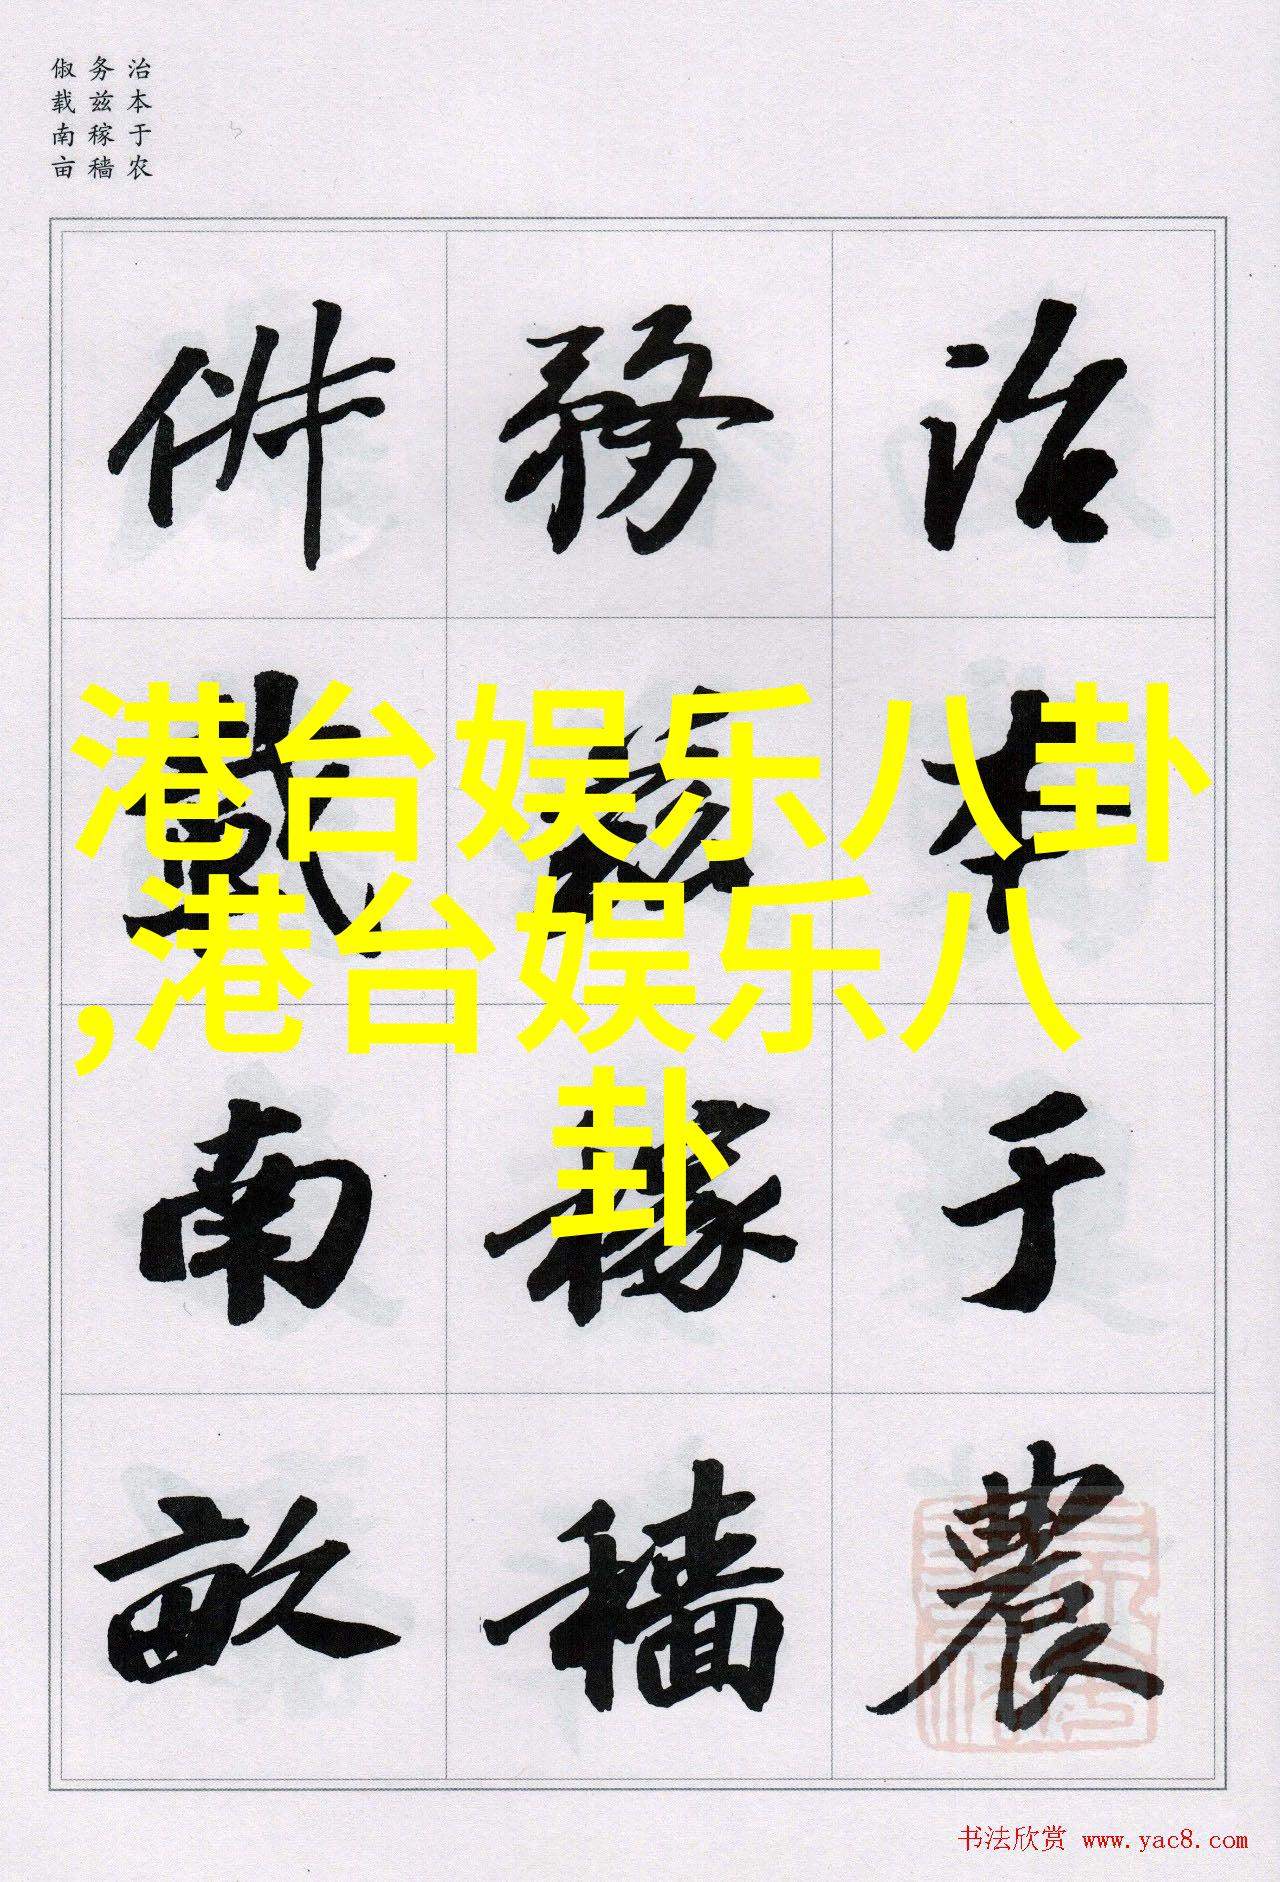 治本于农
务兹稼穑
俶载南亩
治本于農
務兹稼穡
俶載南畝
港台娱乐八卦
,港台娱乐八
卦
书法欣赏 www.yac8.com